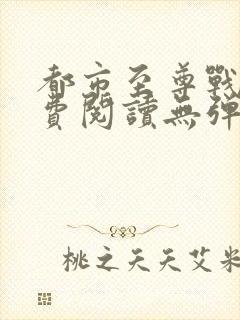 都市至尊戰
費閱讀無彈
桃之夭夭艾米